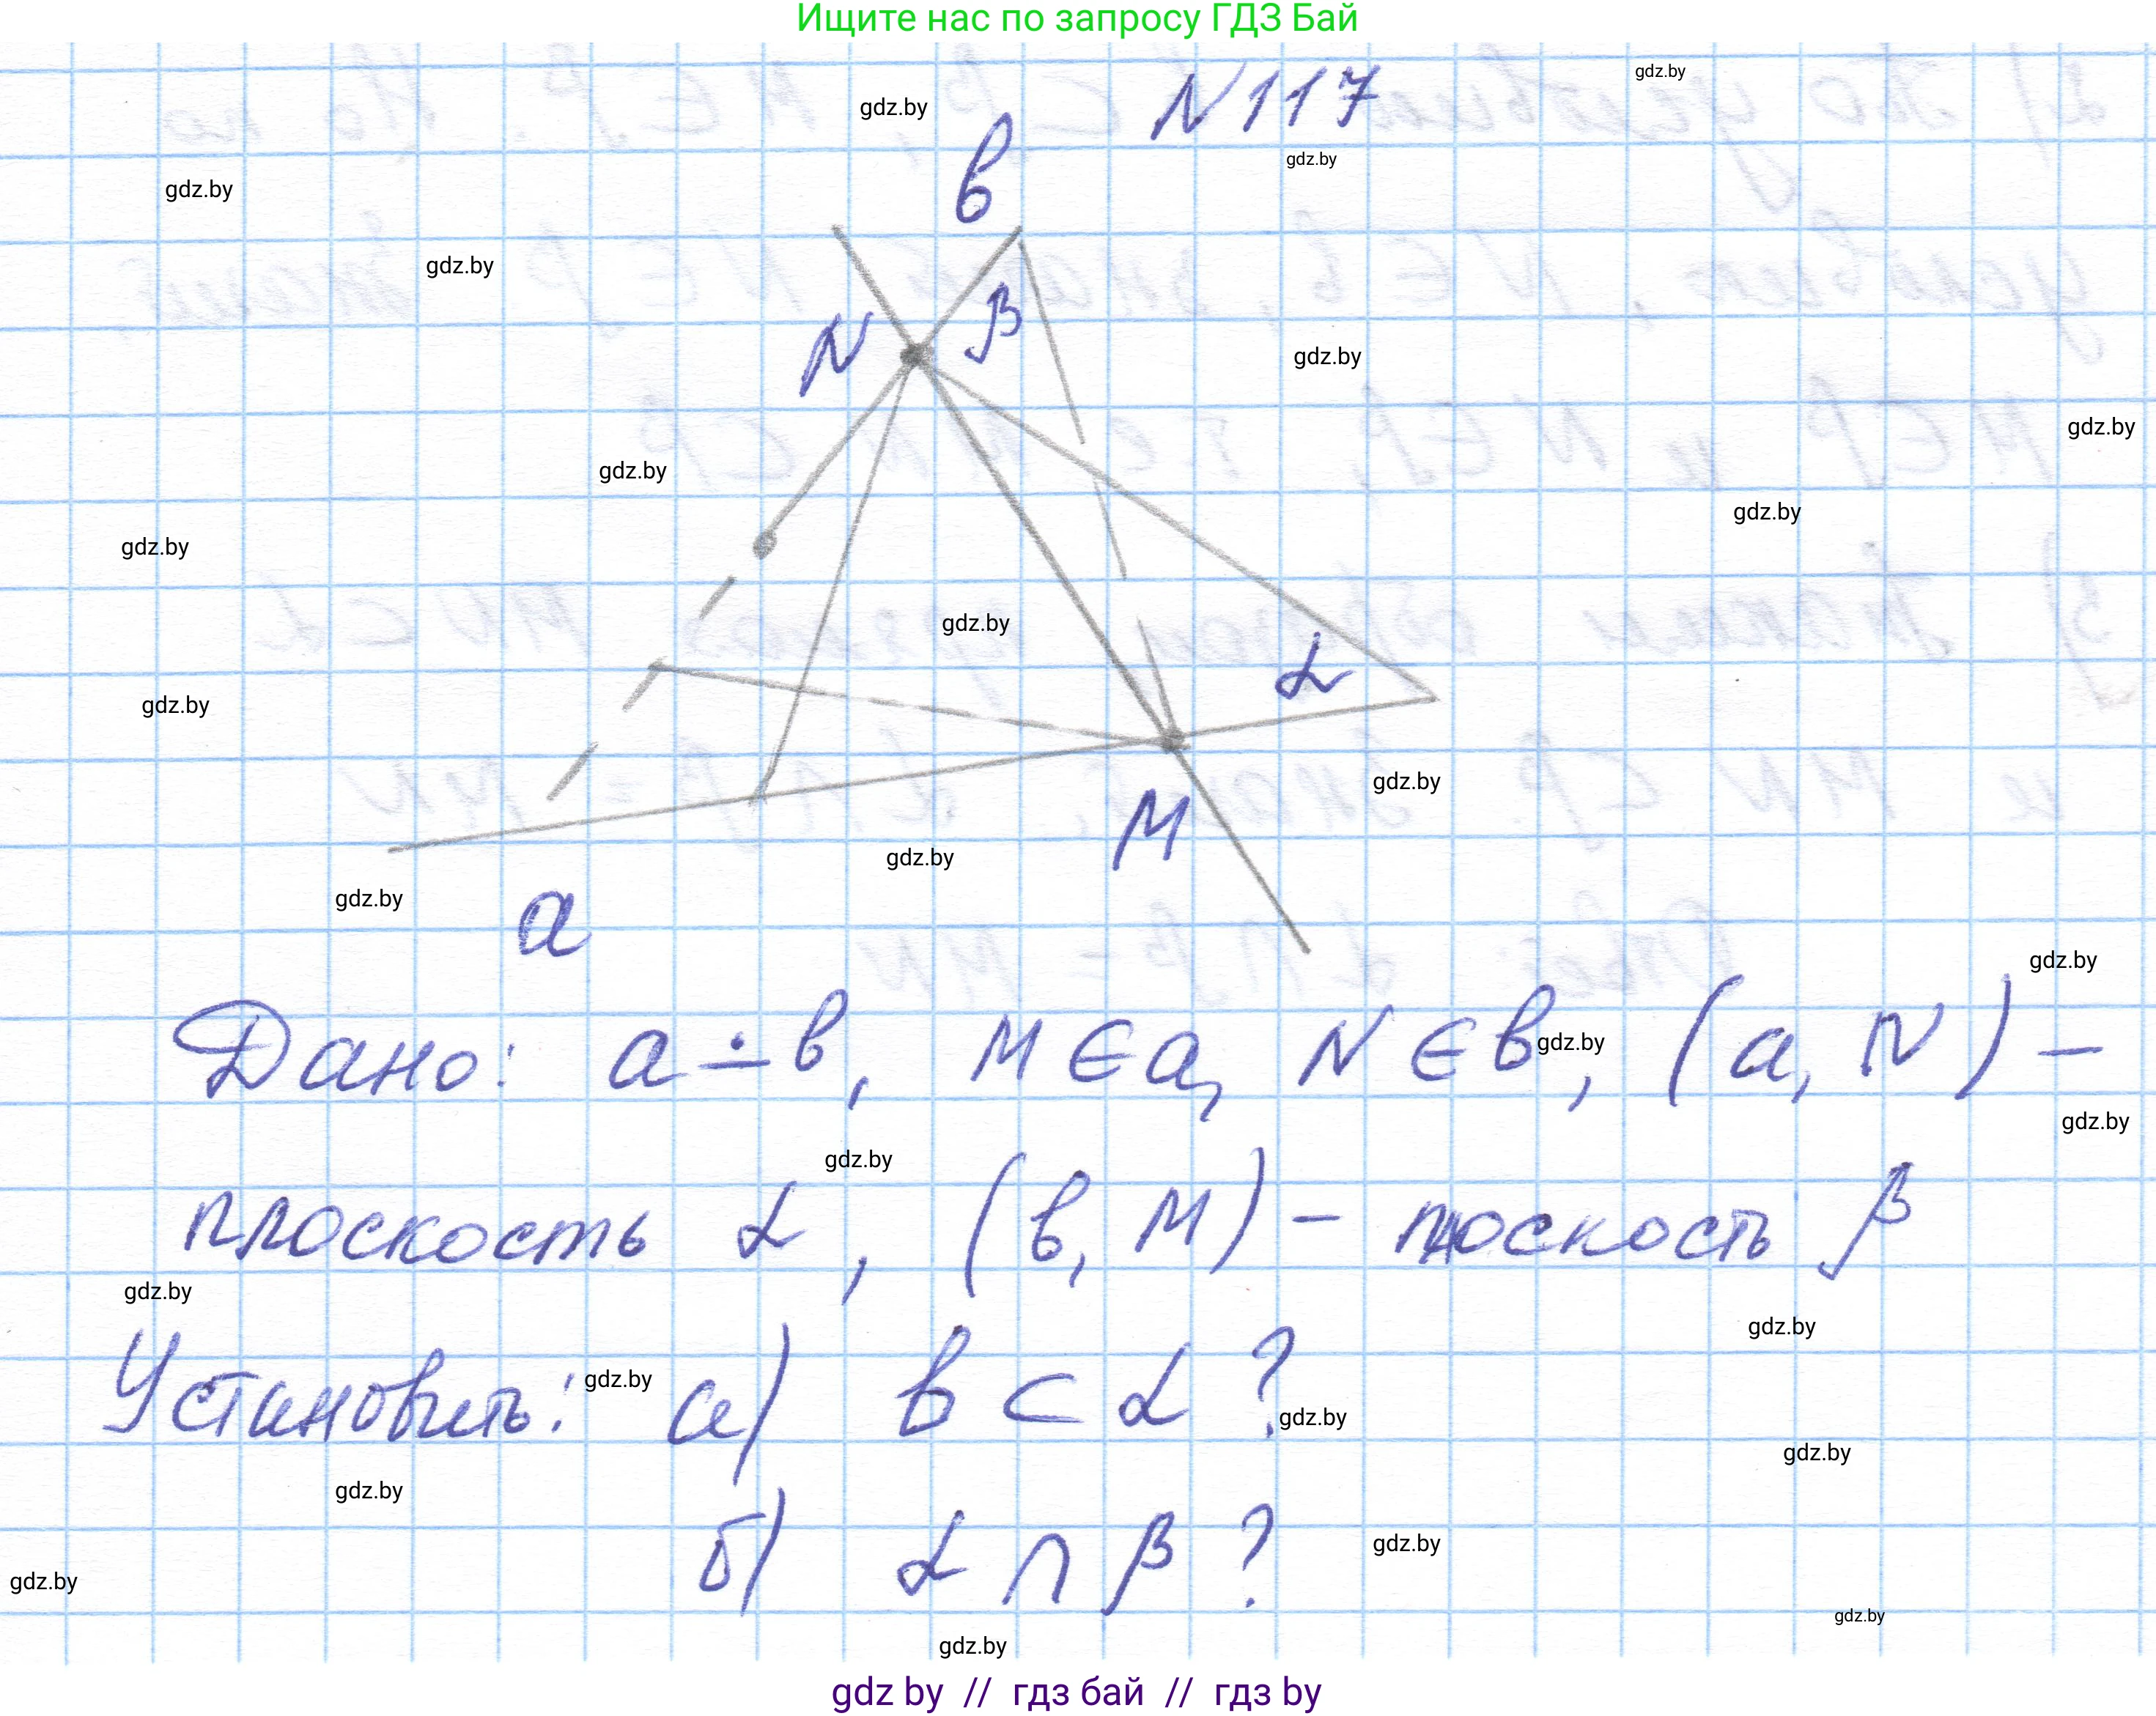 Ищите нас по запросу ГДЗ Бай
N117
gdz.by
gdz.by
gdz.by
gdz.by
в
gdz.by
N
β
gdz.by
gdz.by
gdz.by
gdz.by
gdz.by
gdz.by
α
gdz.by
gdz.by
M
gdz.by
gdz.by
a
gdz.by
Дано: a ∸ в, M ∈ a, N ∈ в, (a, N) –
gdz.by
gdz.by
gdz.by
плоскость α, (в, M) – плоскость β
gdz.by
gdz.by
Установить: а) в ⊂ α ?
gdz.by
gdz.by
gdz.by
gdz.by
б) α ∩ β ?
gdz.by
gdz.by
gdz.by
gdz.by
gdz by // гдз бай // гдз by